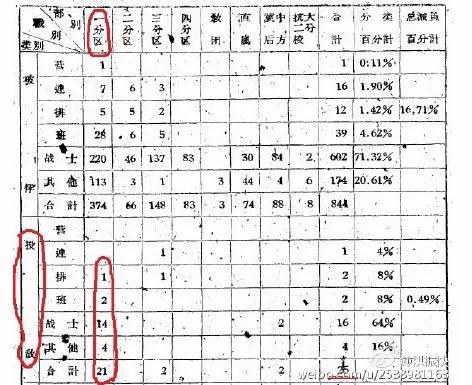 部別 職別 类别 一分区 二分区 三分区 四分区 教团 直属 冀中后方 抗大二分校 合計 分类百分計 总派員百分計
被俘
营 1 1 0.11%
連 7 6 3 16 1.90%
排 5 5 2 12 1.42% 16,71%
班 28 6 5 39 4.62%
战士 220 46 137 83 30 84 2 602 71.32%
其他 113 3 1 3 44 4 6 174 20.61%
合計 374 66 148 83 3 74 88 8 844
投敌
营
連 1 1 4%
排 1 1 2 8%
班 2 2 8% 0.49%
战士 14 2 16 64%
其他 4 4 16%
合計 21 2 2 25
weibo.com/u/2538981163